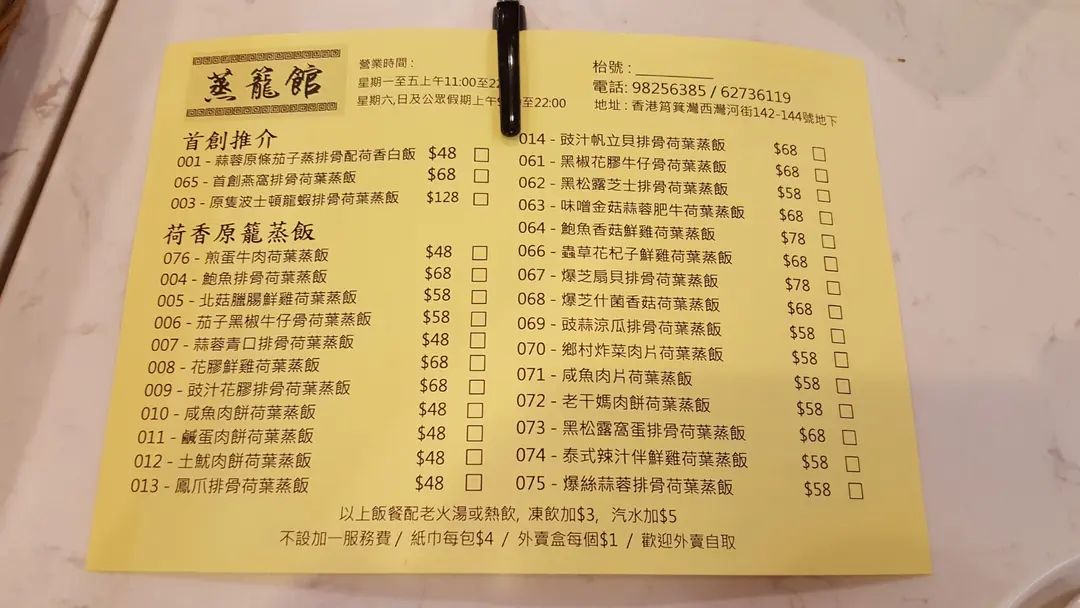 蒸籠館
營業時間：
星期一至五上午11:00至
星期六,日及公眾假期上午 至22:00
枱號：
電話: 98256385 / 62736119
地址：香港筲箕灣西灣河街142-144號地下
首創推介
001 - 蒜蓉原條茄子蒸排骨配荷香白飯 $48 □
065 - 首創燕窩排骨荷葉蒸飯 $68 □
003 - 原隻波士頓龍蝦排骨荷葉蒸飯 $128 □
荷香原籠蒸飯
076 - 煎蛋牛肉荷葉蒸飯 $48 □
004 - 鮑魚排骨荷葉蒸飯 $68 □
005 - 北菇臘腸鮮雞荷葉蒸飯 $58 □
006 - 茄子黑椒牛仔骨荷葉蒸飯 $58 □
007 - 蒜蓉青口排骨荷葉蒸飯 $48 □
008 - 花膠鮮雞荷葉蒸飯 $68 □
009 - 豉汁花膠排骨荷葉蒸飯 $68 □
010 - 咸魚肉餅荷葉蒸飯 $48 □
011 - 鹹蛋肉餅荷葉蒸飯 $48 □
012 - 土魷肉餅荷葉蒸飯 $48 □
013 - 鳳爪排骨荷葉蒸飯 $48 □
014 - 豉汁帆立貝排骨荷葉蒸飯 $68 □
061 - 黑椒花膠牛仔骨荷葉蒸飯 $68 □
062 - 黑松露芝士排骨荷葉蒸飯 $58 □
063 - 味噌金菇蒜蓉肥牛荷葉蒸飯 $68 □
064 - 鮑魚香菇鮮雞荷葉蒸飯 $78 □
066 - 蟲草花杞子鮮雞荷葉蒸飯 $68 □
067 - 爆芝扇貝排骨荷葉蒸飯 $78 □
068 - 爆芝什菌香菇荷葉蒸飯 $68 □
069 - 豉蒜涼瓜排骨荷葉蒸飯 $58 □
070 - 鄉村炸菜肉片荷葉蒸飯 $58 □
071 - 咸魚肉片荷葉蒸飯 $58 □
072 - 老干媽肉餅荷葉蒸飯 $58 □
073 - 黑松露窩蛋排骨荷葉蒸飯 $68 □
074 - 泰式辣汁伴鮮雞荷葉蒸飯 $58 □
075 - 爆絲蒜蓉排骨荷葉蒸飯 $58 □
以上飯餐配老火湯或熱飲, 凍飲加$3, 汽水加$5
不設加一服務費 / 紙巾每包$4 / 外賣盒每個$1 / 歡迎外賣自取